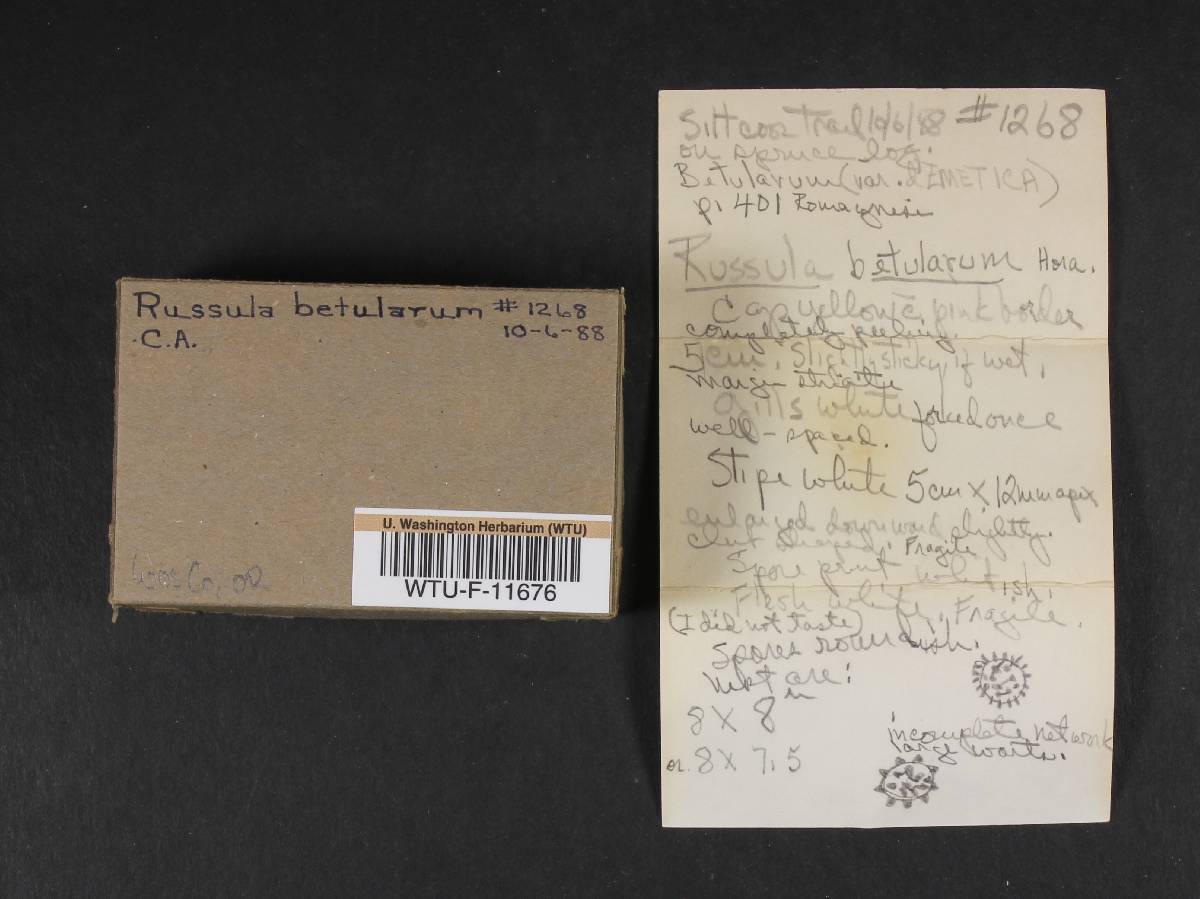 Russula betularum # 1268
C.A. 10-6-88
Coos Co, OR
U. Washington Herbarium (WTU)
WTU-F-11676
Siltcoos Trail 10/6/88 #1268
on spruce log.
Betularum (var. EMETICA)
p. 401 Romagnesi
Russula betularum Hora.
Cap yellow c̄ pink border
completely peeling.
5cm. Slightly sticky if wet.
margin striate
Gills white forked once
well-spaced.
Stipe white 5cm X 12mm apix
enlarged downward slightly.
club shaped. Fragile
Spore print whitish.
Flesh white, Fragile.
(I did not taste)
Spores roundish.
Most are:
8 X 8 u
or 8 X 7.5
incomplete network
large warts.